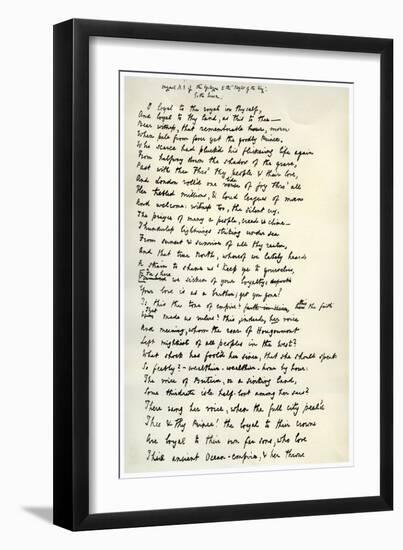 Original M.S. of the Epilogue to the "Idylls of the King".
To the Queen.
O loyal to the royal in thyself,
And loyal to thy land, as this to thee—
Bear witness, that rememberable hour, morn
When pale from fever yet the goodly Prince,
Who scarce had pluck'd his flickering life again
From halfway down the shadow of the grave,
Past with thee thro' thy people & their love,
And London roll'd one tide of joy thro' all
Her trebled millions, & loud leagues of man
And welcome: witness too, the silent cry,
The prayer of many a people, creed & clime—
Thunderless lightnings striking under sea
From sunset & sunrise of all thy realm,
And that true North, whereof we lately heard
A strain to shame us 'keep ye to yourselves,
So loyal
we sicken of your loyalty,
Your love is as a burthen: get you gone!'
Is this the tone of empire? here the faith
That made us rulers? this, indeed, her voice
And meaning, whom the roar of Hougoumont
Left mightiest of all people in the west?
What shock has fool'd her since, that she should speak
So feebly?—wealthier—wealthier—hour by hour.
The voice of Britain, or a sinking land,
Some third-rate isle half-lost among her seas?
There rang her voice, when the full city peal'd
Thee & thy Prince! the loyal to their crown
Are loyal to their own far sons, who love
This ancient Ocean-empire, & her throne